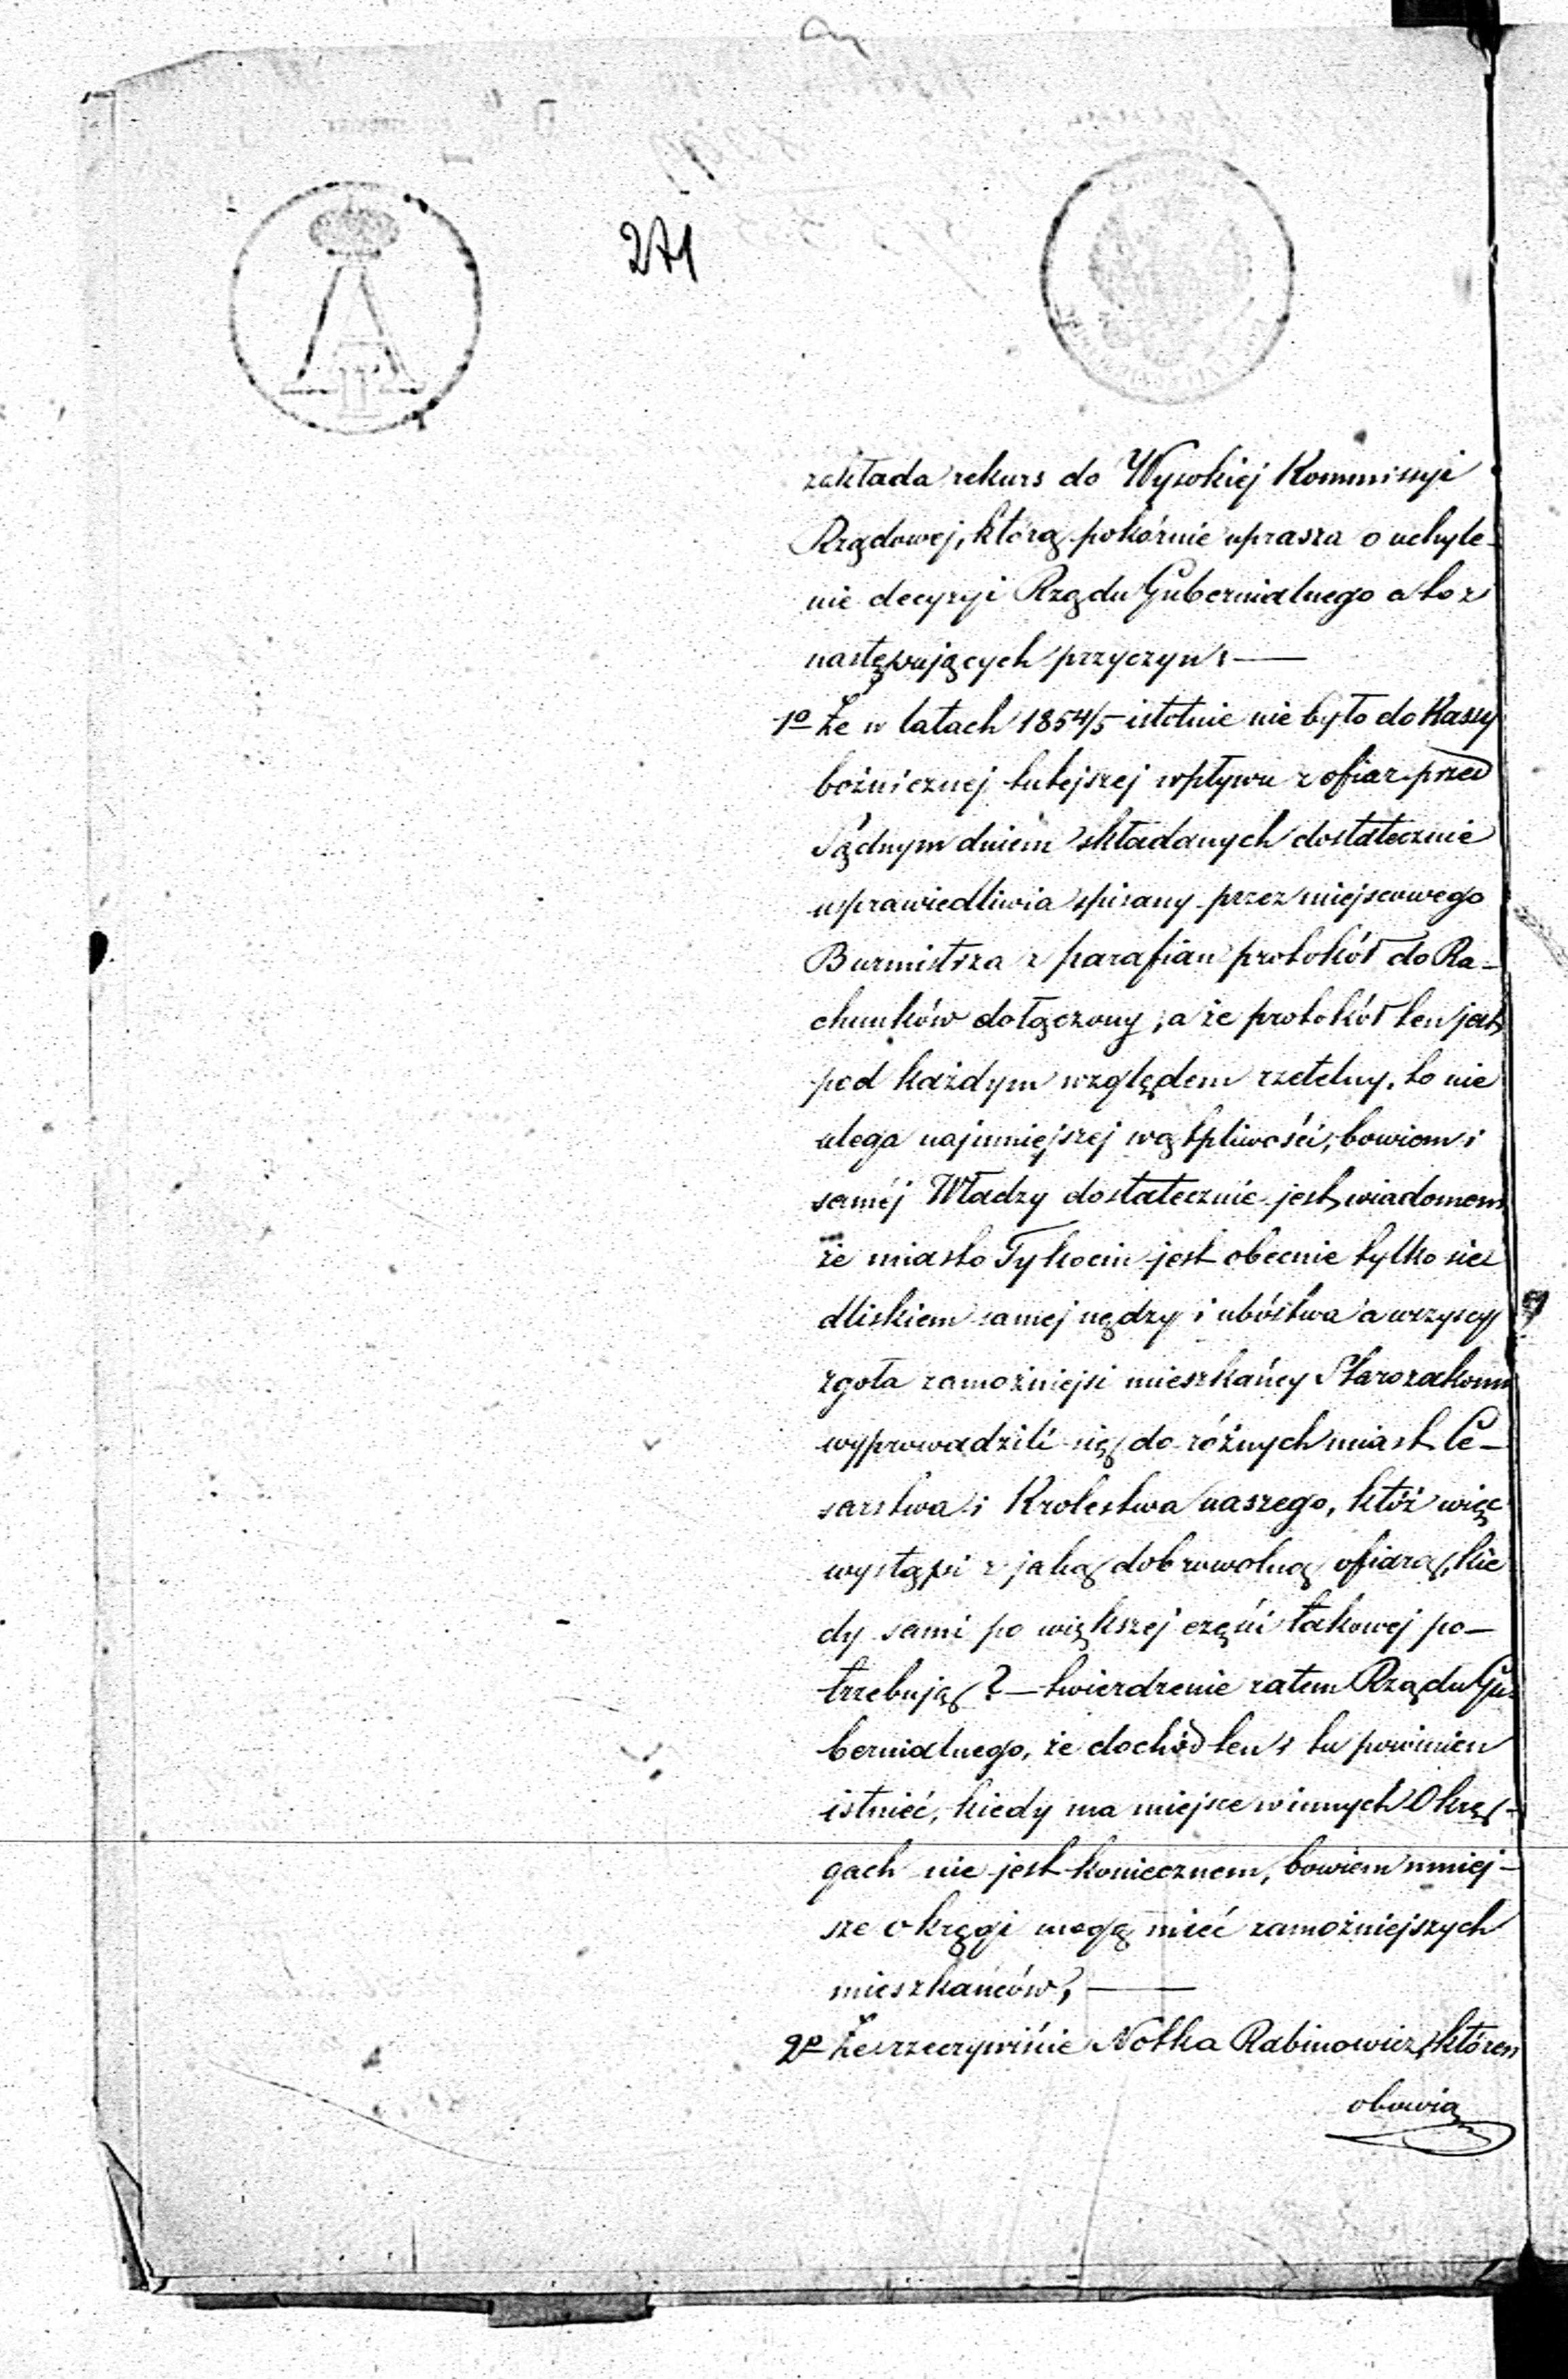 271
A
II
zakłada rekurs do Wysokiej Kommissyi
Rządowej, którą pokórnie uprasza o uchyle-
nie decyzyi Rządu Gubernialnego a to z
następujących przyczyn: —
1o Że w latach 1854/5 istotnie nie było do Kassy
bożnicznej tutejszej wpływu z ofiar przed
Sądnym dniem składanych dostatecznie
usprawiedliwia spisany przez miejscowego
Burmistrza z parafian protokół do Ra-
chunków dołączony, a że protokół ten jest
pod każdym względem rzetelny, to nie
ulega najmniejszej wątpliwości, bowiem i
samėj Władzy dostatecznie jest wiadomem
że miasto Tykocin jest obecnie tylko sie
dliskiem samej nędzy i ubóstwa a wszyscy
zgoła zamożniejsi mieszkańcy Starozakonni
wyprowadzili się do różnych miast Ce-
sarstwa i Krolestwa naszego, któż więc
wystąpi z jaką dobrowolną ofiarą, kie
dy sami po większej części takowej po-
trzebują? — twierdzenie zatem Rządu Gu-
bernialnego, że dochód ten i tu powinien
istnieć, kiedy ma miejsce w innych Okrę-
gach nie jest koniecznem, bowiem mniej-
sze okręgi mogą mieć zamożniejszych
mieszkańców, —
2o Że rzeczywiście Notka Rabinowicz, któren
obowią